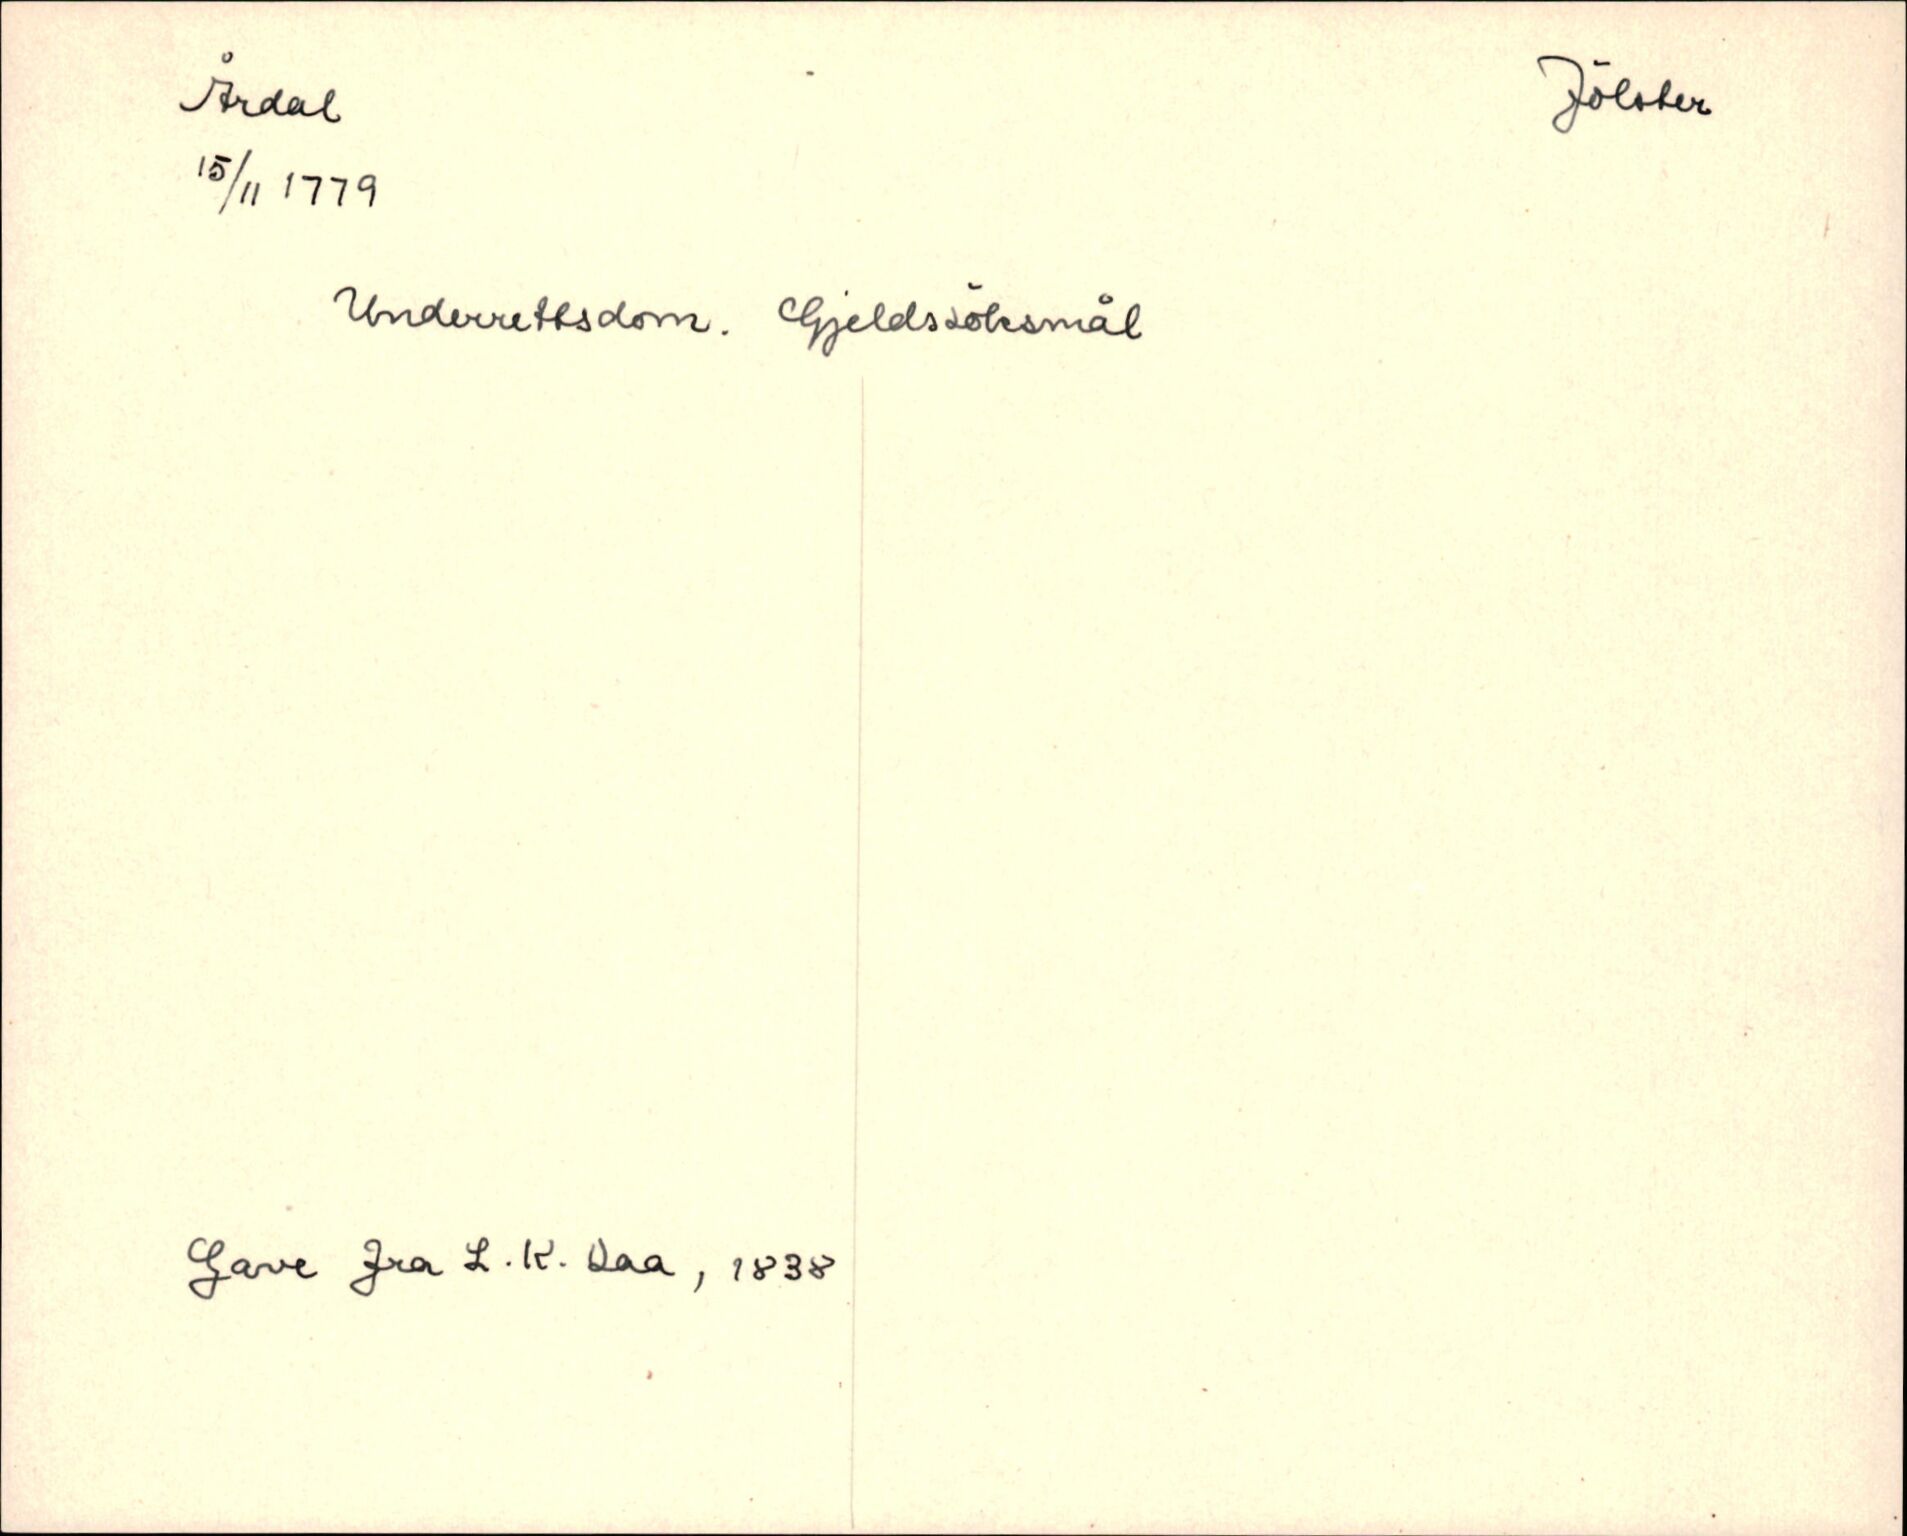 Årdal
Jölster
15/11 1779
Underrettsdom. Gjeldssöksmål
Gave fra L. K. Daa, 1838